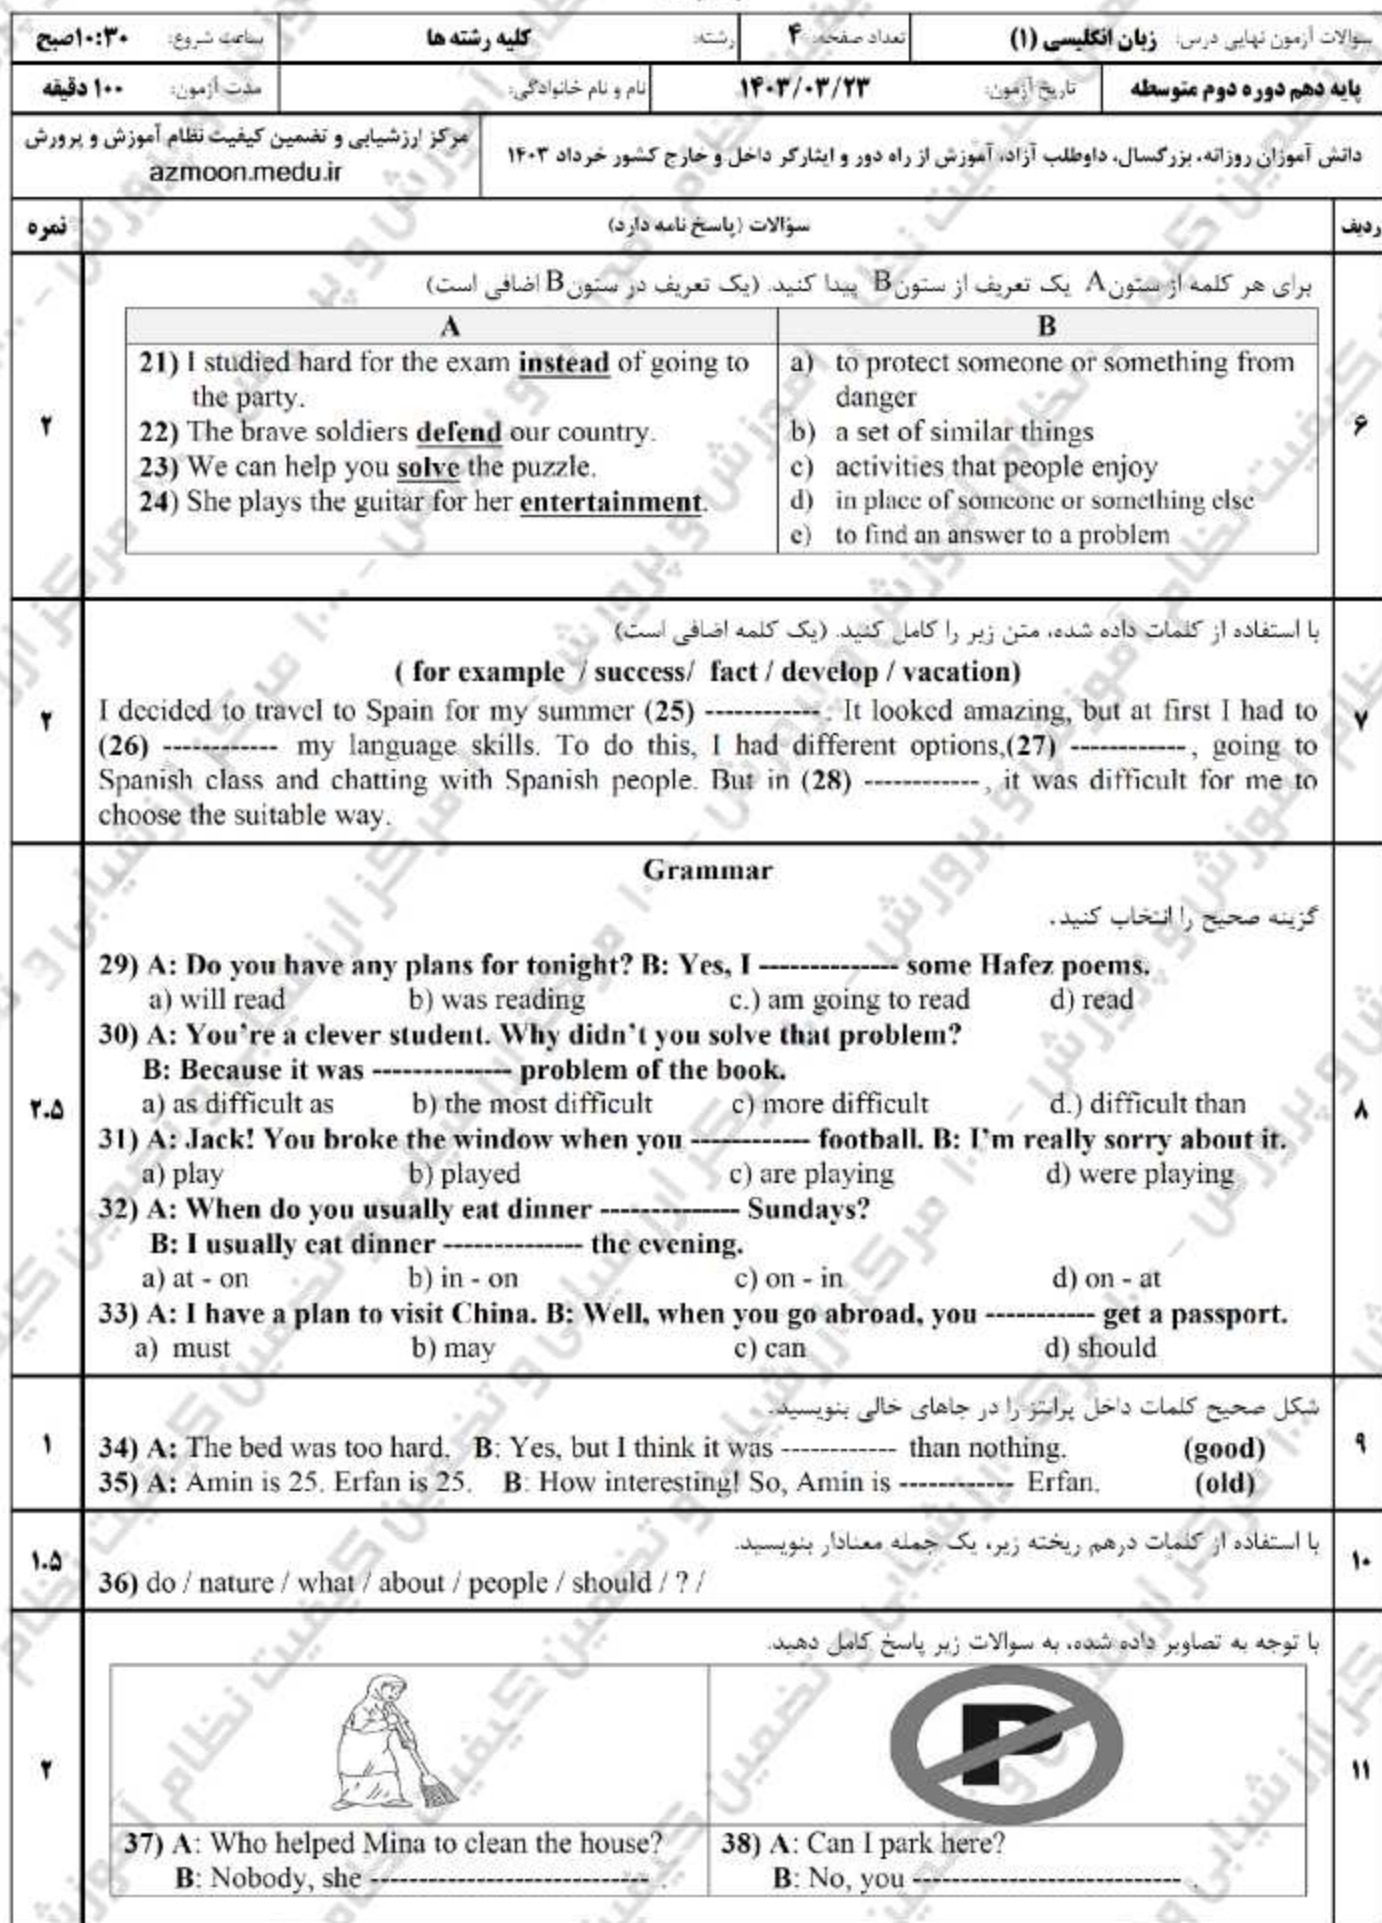 سوالات آزمون نهایی درس: زبان انگلیسی (۱)   تعداد صفحه: ۴   رشته:   کلیه رشته ها   ساعت شروع:   ۱۰:۳۰صبح
پایه دهم دوره دوم متوسطه   تاریخ آزمون:   ۱۴۰۳/۰۳/۲۳   نام و نام خانوادگی:   مدت آزمون:   ۱۰۰ دقیقه
دانش آموزان روزانه، بزرگسال، داوطلب آزاد، آموزش از راه دور و ایثارگر داخل و خارج کشور خرداد ۱۴۰۳
مرکز ارزشیابی و تضمین کیفیت نظام آموزش و پرورش
azmoon.medu.ir
ردیف   سؤالات (پاسخ نامه دارد)   نمره
۶
برای هر کلمه از ستون A یک تعریف از ستون B پیدا کنید. (یک تعریف در ستون B اضافی است)
۲
A
21) I studied hard for the exam instead of going to
the party.
22) The brave soldiers defend our country.
23) We can help you solve the puzzle.
24) She plays the guitar for her entertainment.
B
a) to protect someone or something from
danger
b) a set of similar things
c) activities that people enjoy
d) in place of someone or something else
e) to find an answer to a problem
۷
با استفاده از کلمات داده شده، متن زیر را کامل کنید. (یک کلمه اضافی است)
۲
( for example / success/ fact / develop / vacation)
I decided to travel to Spain for my summer (25) ------------ . It looked amazing, but at first I had to
(26) ------------ my language skills. To do this, I had different options,(27) ------------ , going to
Spanish class and chatting with Spanish people. But in (28) ------------ , it was difficult for me to
choose the suitable way.
Grammar
۸
گزینه صحیح را انتخاب کنید.
۲.۵
29) A: Do you have any plans for tonight? B: Yes, I -------------- some Hafez poems.
a) will read   b) was reading   c.) am going to read   d) read
30) A: You're a clever student. Why didn't you solve that problem?
B: Because it was -------------- problem of the book.
a) as difficult as   b) the most difficult   c) more difficult   d.) difficult than
31) A: Jack! You broke the window when you ------------ football. B: I'm really sorry about it.
a) play   b) played   c) are playing   d) were playing
32) A: When do you usually eat dinner -------------- Sundays?
B: I usually eat dinner -------------- the evening.
a) at - on   b) in - on   c) on - in   d) on - at
33) A: I have a plan to visit China. B: Well, when you go abroad, you ----------- get a passport.
a) must   b) may   c) can   d) should
۹
شکل صحیح کلمات داخل پرانتز را در جاهای خالی بنویسید.
۱
34) A: The bed was too hard. B: Yes, but I think it was ------------ than nothing. (good)
35) A: Amin is 25. Erfan is 25. B: How interesting! So, Amin is ------------ Erfan. (old)
۱۰
با استفاده از کلمات درهم ریخته زیر، یک جمله معنادار بنویسید.
۱.۵
36) do / nature / what / about / people / should / ? /
۱۱
با توجه به تصاویر داده شده، به سوالات زیر پاسخ کامل دهید.
۲
P
37) A: Who helped Mina to clean the house?
B: Nobody, she ---------------------------- .
38) A: Can I park here?
B: No, you --------------------------- .
مرکز ارزشیابی و تضمین کیفیت نظام آموزش و پرورش